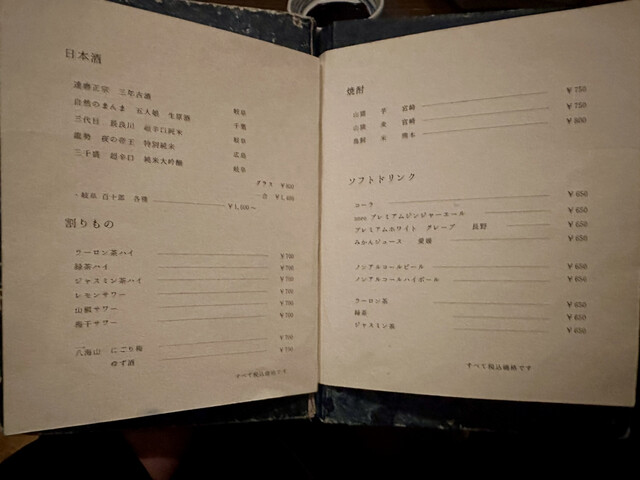 日本酒
達磨正宗 三年古酒 岐阜
自然のまんま 五人娘 生原酒 千葉
三代目 長良川 超辛口純米 岐阜
龍勢 夜の帝王 特別純米 広島
三千盛 超辛口 純米大吟醸 岐阜
グラス ¥850
一合 ¥1,400
- 岐阜 百十郎 各種 ¥1,000～
割りもの
ウーロン茶ハイ ¥700
緑茶ハイ ¥700
ジャスミン茶ハイ ¥700
レモンサワー ¥700
山椒サワー ¥700
梅干サワー ¥700
八海山 にごり梅 ¥700
ゆず酒 ¥700
すべて税込価格です
焼酎
山猫 芋 宮崎 ¥750
山猿 麦 宮崎 ¥750
鳥飼 米 熊本 ¥800
ソフトドリンク
コーラ ¥650
プレミアムジンジャーエール ¥650
プレミアムホワイト グレープ 長野 ¥650
みかんジュース 愛媛 ¥650
ノンアルコールビール ¥650
ノンアルコールハイボール ¥650
ウーロン茶 ¥650
緑茶 ¥650
ジャスミン茶 ¥650
すべて税込価格です